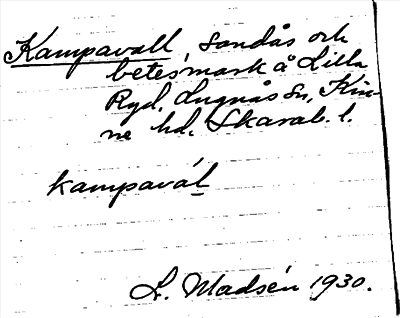 Kampavall, sandås och
betesmark å Lilla
Ryd, Lugnås sn, Kin-
ne hd. Skarab. l.
kampavál
L. Madsén 1930.